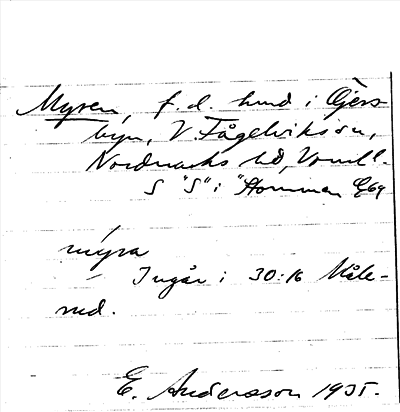 Myren, f.d. hmd i Gjers-
byn, V. Fågelviks sn,
Nordmarks hd, Värml.
S "S" i "Hommen Gbg

myra
Ingår i 30:16 Måle-
rud.

E. Andersson 1935.